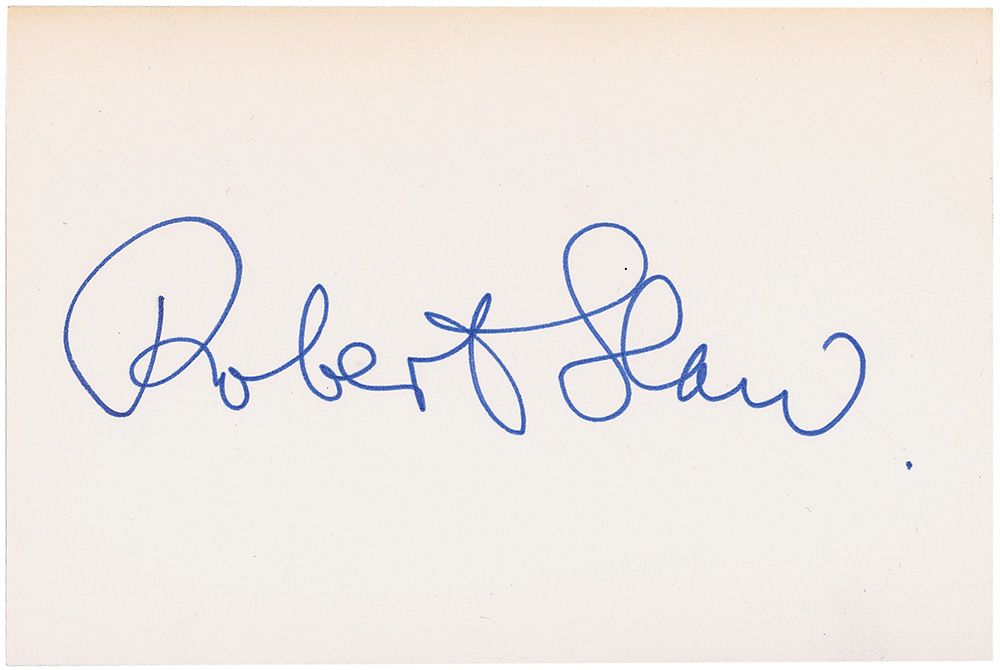 Robert Shaw.